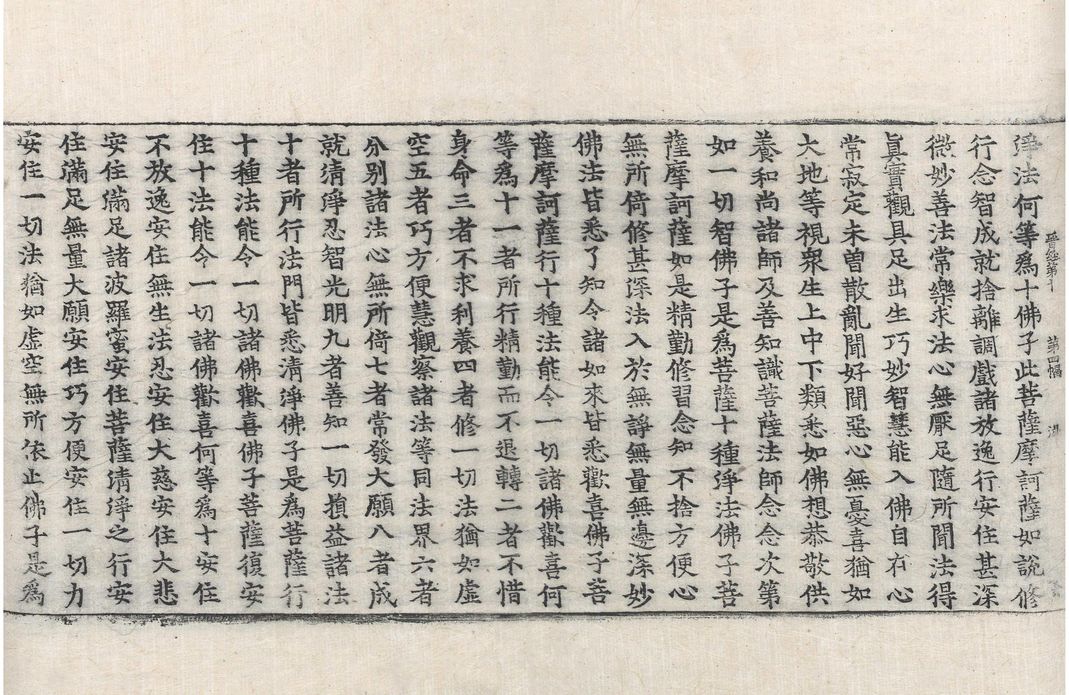 淨法何等爲十佛子此菩薩摩訶薩如說修
行念智成就捨離調戲諸放逸行安住甚深
微妙善法常樂求法心無厭足隨所聞法得
眞實觀具足出生巧妙智慧能入佛自在心
常寂定未曽散亂聞好聞惡心無憂喜猶如
大地等視衆生上中下類悉如佛想恭敬供
養和尚諸師及善知識菩薩法師念念次第
如一切智佛子是爲菩薩十種淨法佛子菩
薩摩訶薩如是精勤修習念知不捨方便心
無所倚修甚深法入於無諍無量無邊深妙
佛法皆悉了知令諸如來皆悉歡喜佛子菩
薩摩訶薩行十種法能令一切諸佛歡喜何
等爲十一者所行精勤而不退轉二者不惜
身命三者不求利養四者修一切法猶如虛
空五者巧方便慧觀察諸法等同法界六者
分别諸法心無所倚七者常發大願八者成
就清淨忍智光明九者善知一切損益諸法
十者所行法門皆悉清淨佛子是爲菩薩行
十種法能令一切諸佛歡喜佛子菩薩復安
住十法能令一切諸佛歡喜何等爲十安住
不放逸安住無生法忍安住大慈安住大悲
安住滿足諸波羅蜜安住菩薩清淨之行安
住滿足無量大願安住巧方便安住一切力
安住一切法猶如虛空無所依止佛子是爲
晉經第十 第四幅